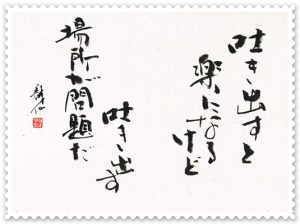 吐き出すと
楽になるけど
吐き出す
場所が問題だ